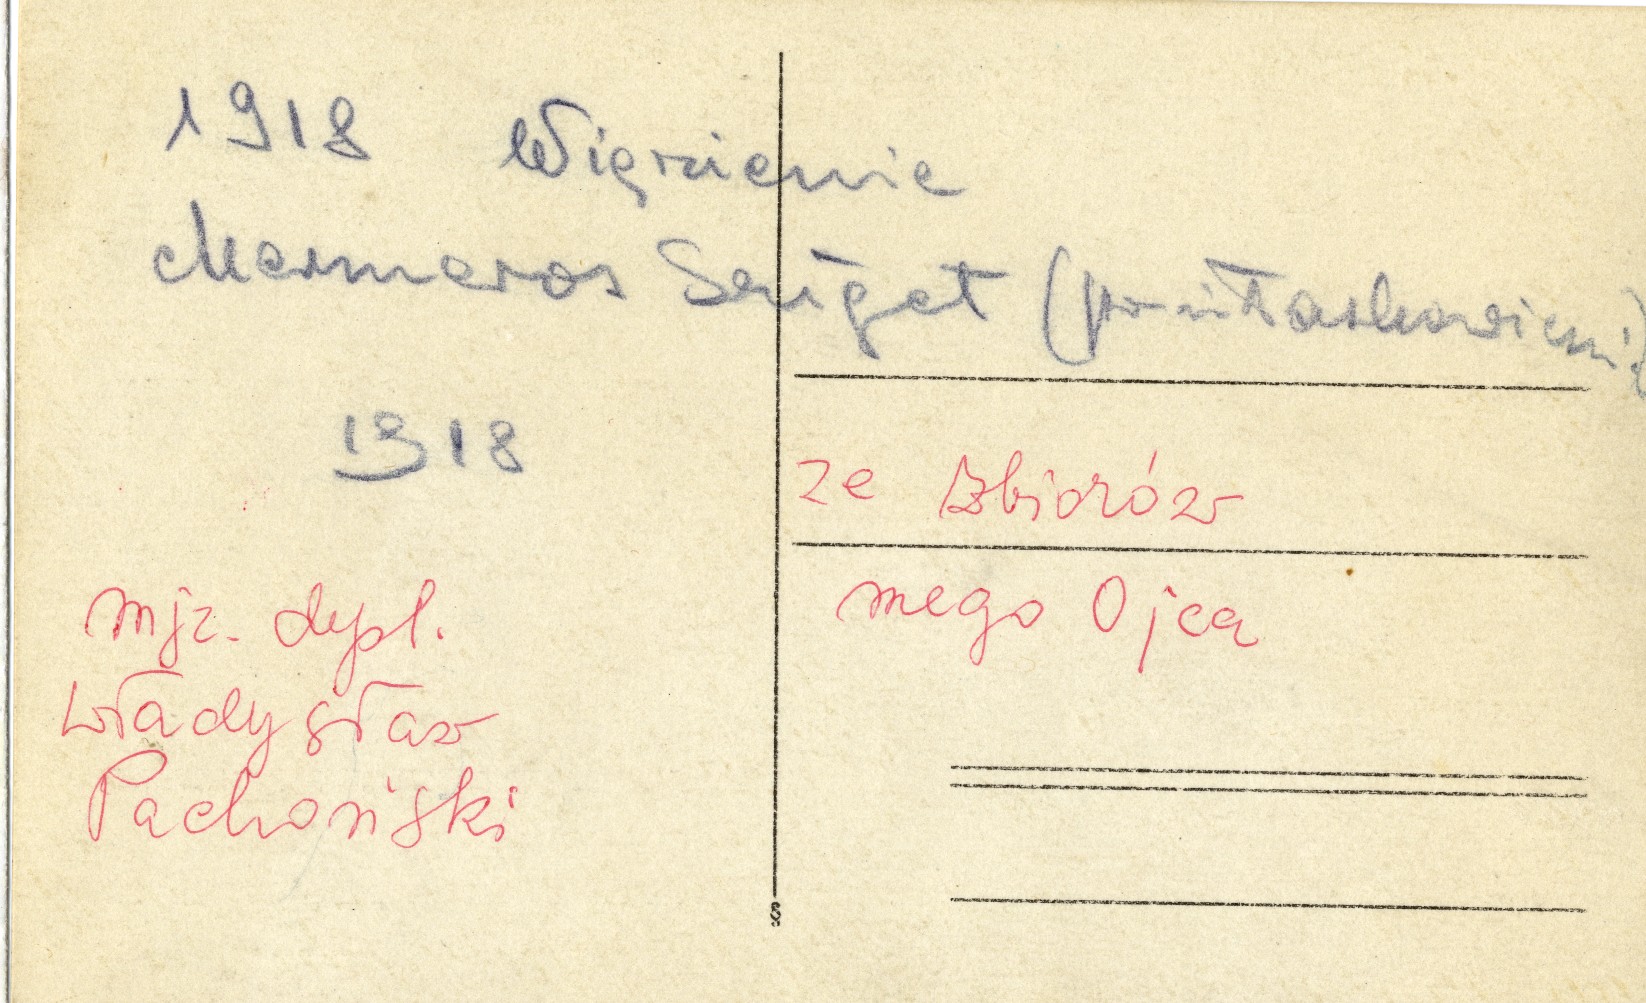 1918 Więzienie
Marmaros Sziget (po ułaskawieniu)
1918
ze zbiorów
mego Ojca
mjr. dypl.
Władysław
Pachoński